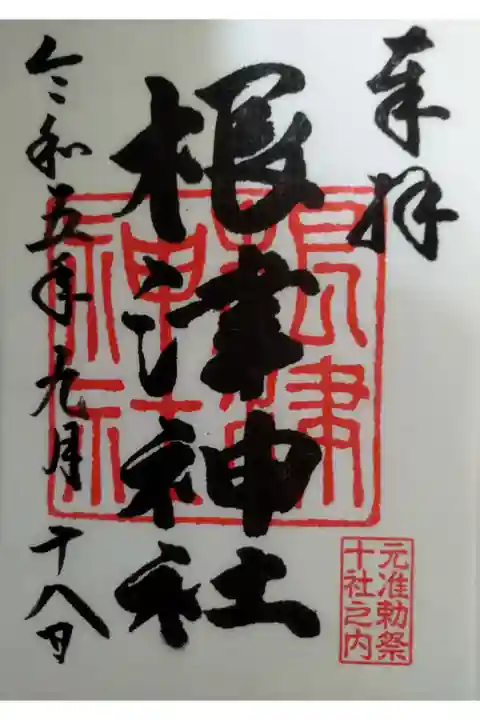 奉拝
根津神社
根津
神社
元准勅祭
十社之内
令和五年九月十八日